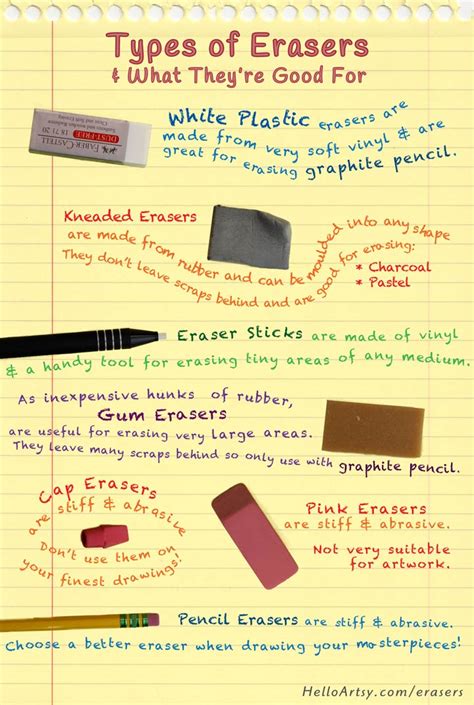 Types of Erasers
& What They're Good For
White Plastic erasers are
made from very soft vinyl & are
great for erasing graphite pencil.
FABER-CASTELL
DUST-FREE 18 71 20
Kneaded Erasers
are made from rubber and can be moulded into any shape
They don't leave scraps behind and are good for erasing:
* Charcoal
* Pastel
Eraser Sticks are made of vinyl
& a handy tool for erasing tiny areas of any medium.
As inexpensive hunks of rubber,
Gum Erasers
are useful for erasing very large areas.
They leave many scraps behind so only use with graphite pencil.
Cap Erasers
are stiff & abrasive
Don't use them on
your finest drawings!
Pink Erasers
are stiff & abrasive.
Not very suitable
for artwork.
Pencil Erasers are stiff & abrasive.
Choose a better eraser when drawing your masterpieces!
HelloArtsy.com/erasers